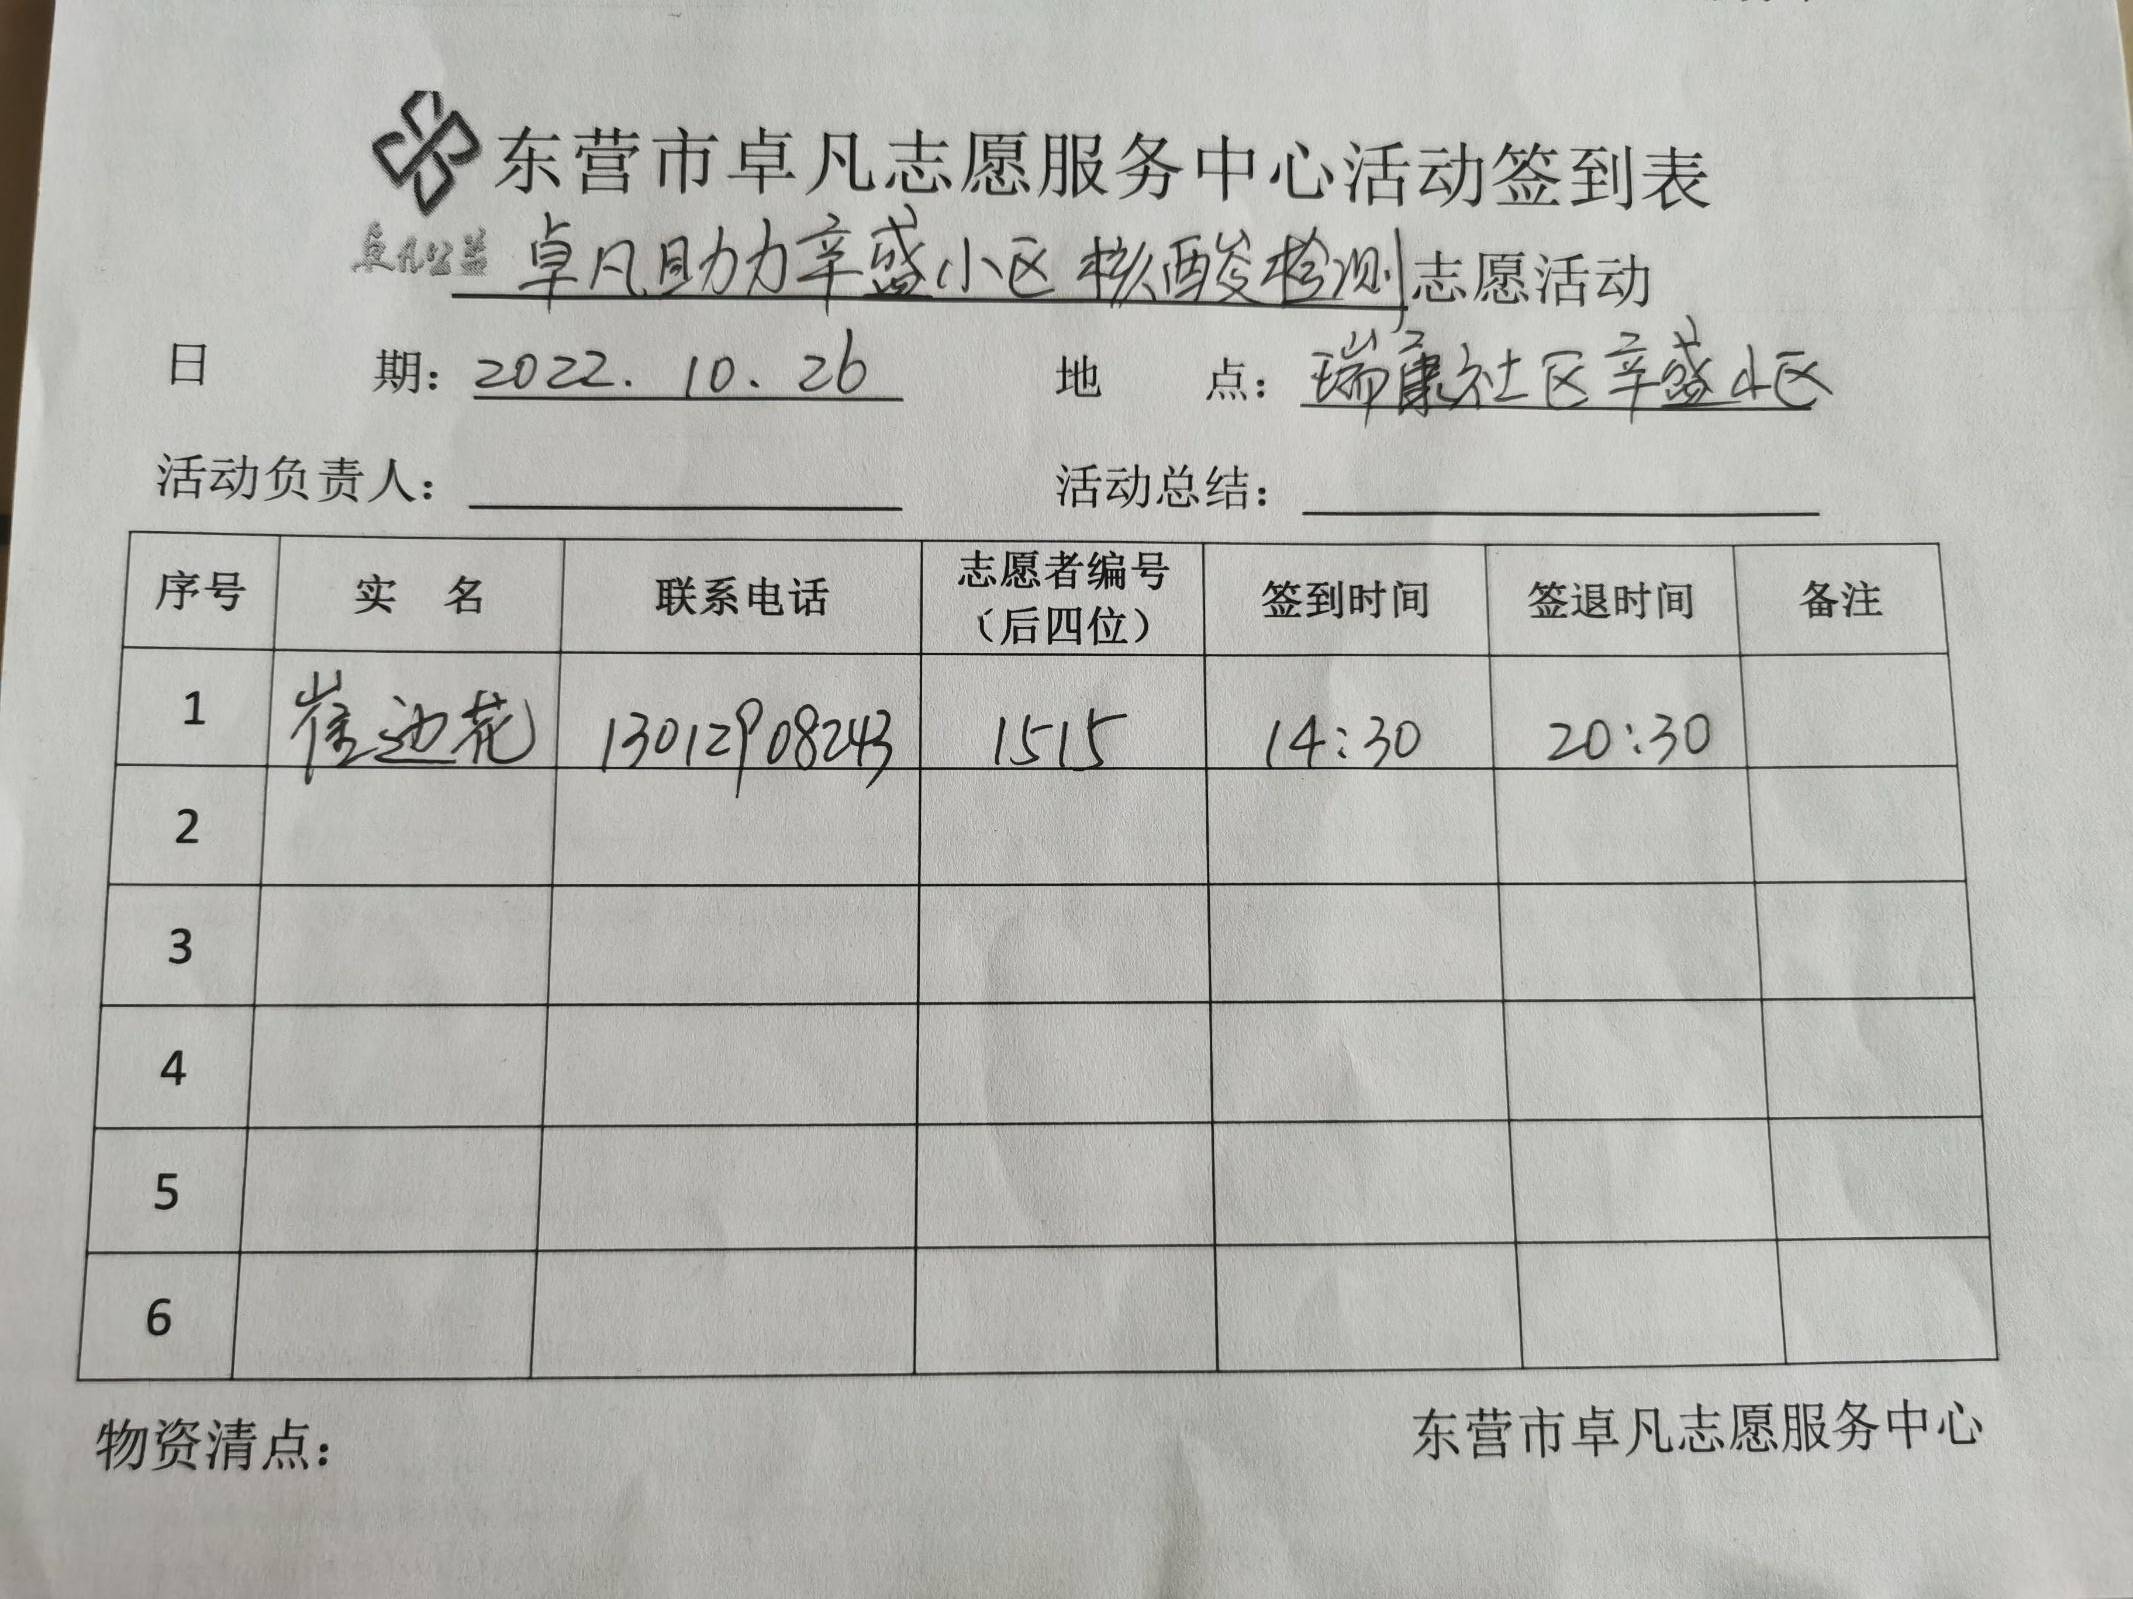 东营市卓凡志愿服务中心活动签到表
卓凡公益
卓凡助力辛盛小区核酸检测志愿活动
日 期：2022.10.26 地 点：瑞康社区辛盛小区
活动负责人： 活动总结：
序号 实 名 联系电话 志愿者编号（后四位） 签到时间 签退时间 备注
1 崔边花 13012908243 1515 14:30 20:30
2
3
4
5
6
物资清点： 东营市卓凡志愿服务中心